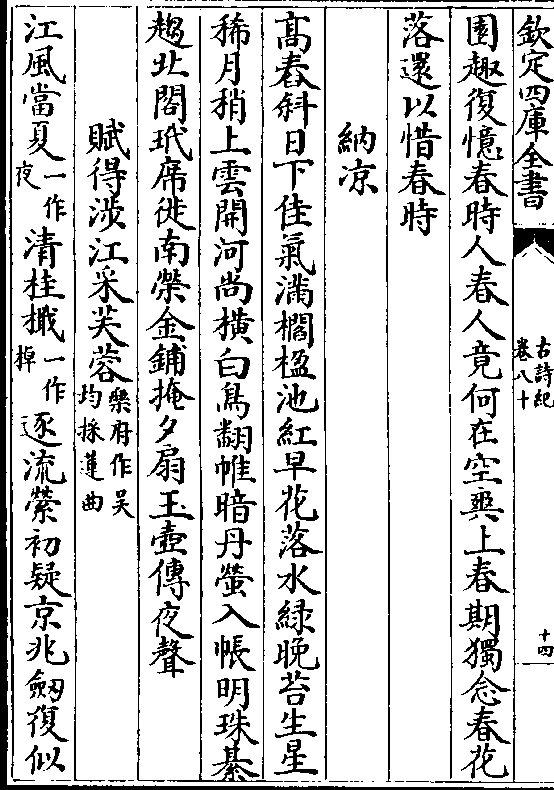 欽定四庫全書
古詩紀
卷八十
十四
園趣復憶春時人春人竟何在空爽上春期獨念春花
落還以惜春時
納凉
高春斜日下佳氣滿櫩楹池紅早花落水緑晚苔生星
稀月稍上雲開河尚横白鳥翻帷暗丹螢入帳明珠綦
趨北閣玳席徙南榮金鋪掩夕扇玉壺傳夜聲
賦得涉江采芙蓉樂府作吴均採蓮曲
江風當夏一作夜清桂檝一作棹逐流縈初疑京兆劒復似